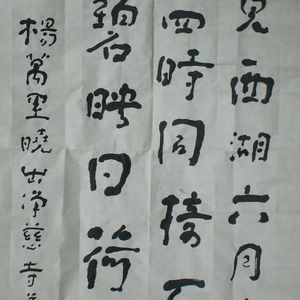 竟西湖六月
四時同接
碧映日荷
楊萬里曉出淨慈寺